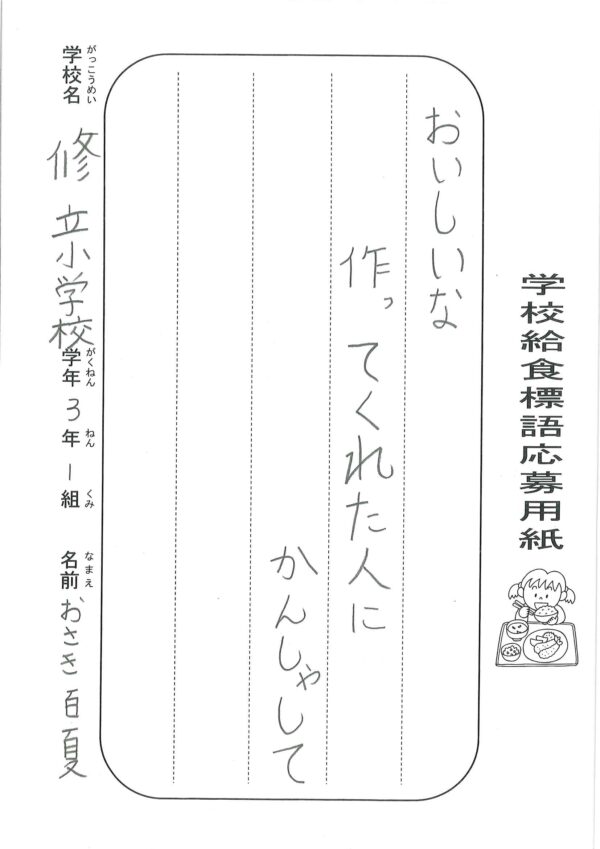 学校給食標語応募用紙
おいしいな
作ってくれた人に
かんしゃして
学校名 がっこうめい 修立小学校 学年 がくねん 3年 ねん 1組 くみ 名前 なまえ おさき百夏